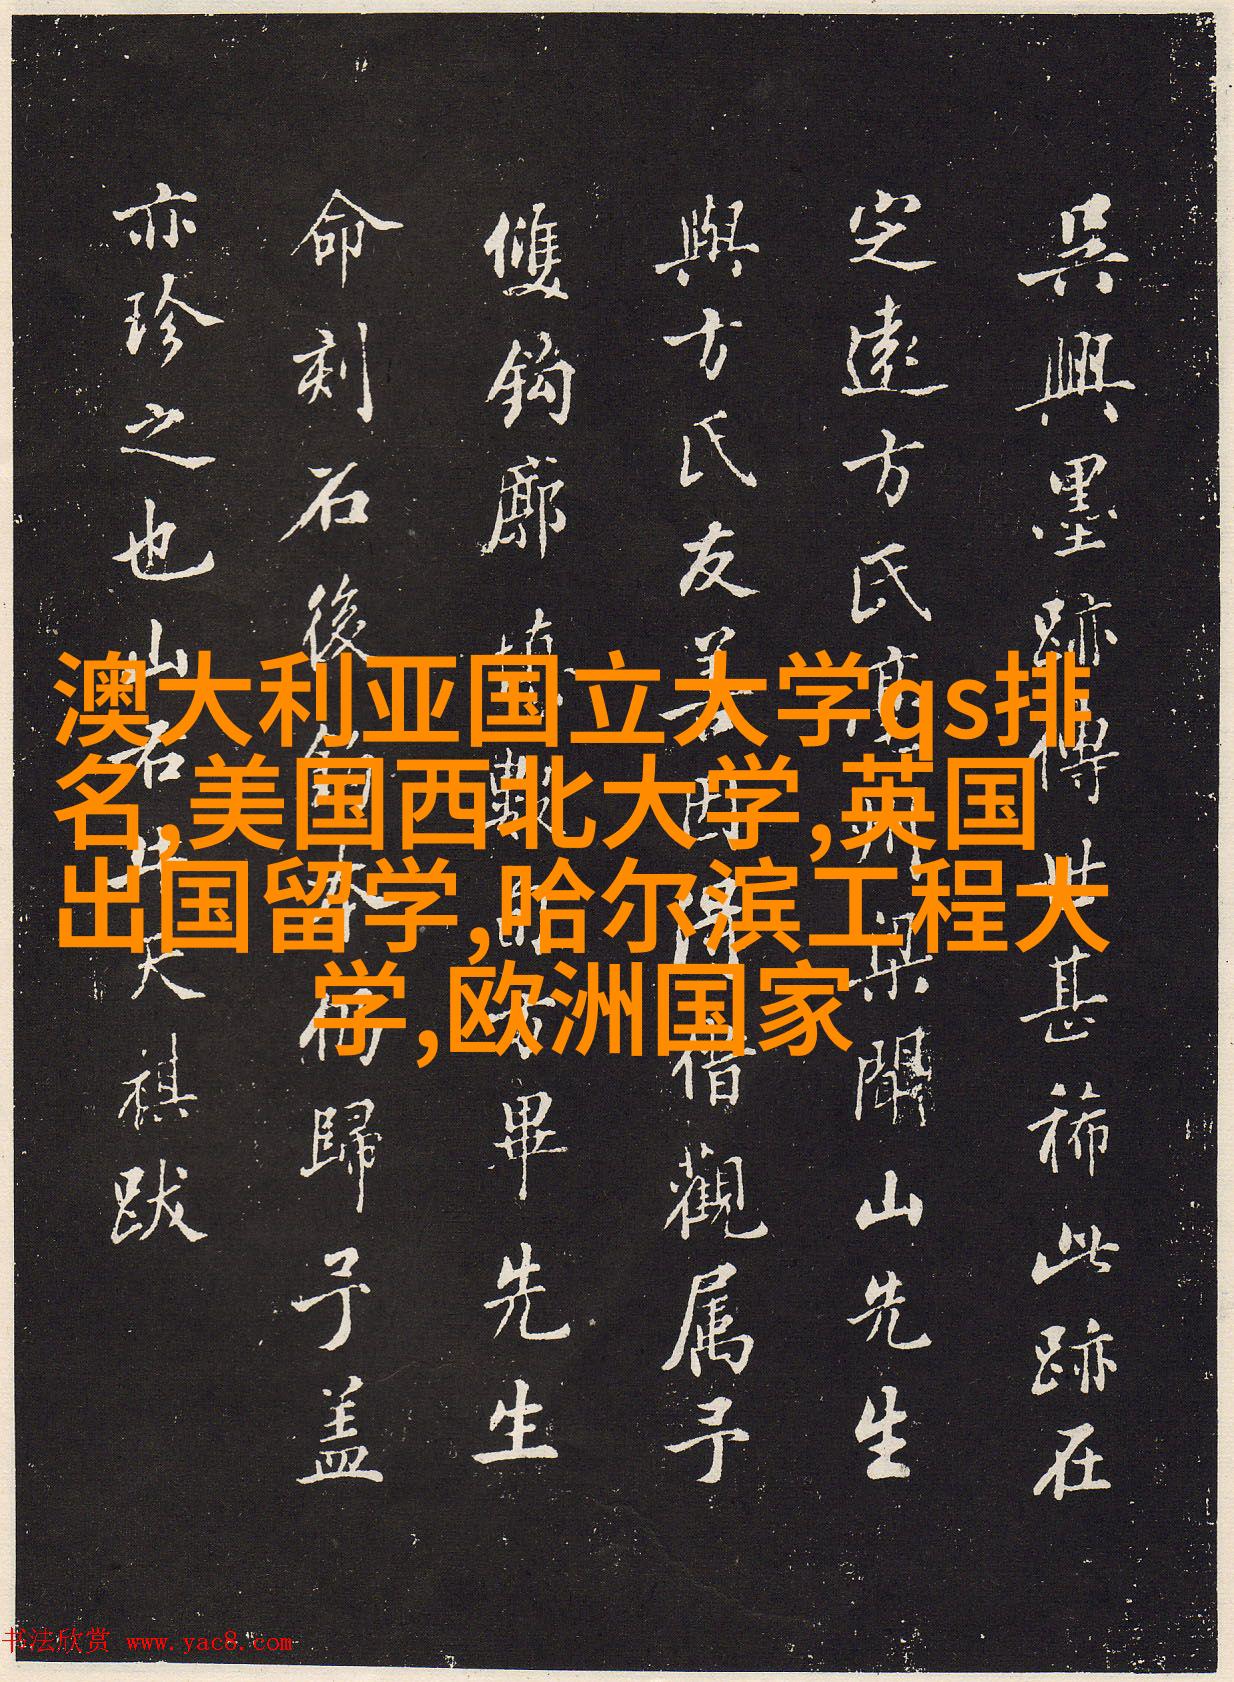 吳興墨跡傳世甚稀此跡在
定遠方氏梁聞山先生
與方氏友善因借觀属予
雙鈎廓畢先生
命刻石後歸予盖
亦珍之也山天祺跋
澳大利亚国立大学qs排
名,美国西北大学,英国
出国留学,哈尔滨工程大
学,欧洲国家
书法欣赏 www.yac8.com